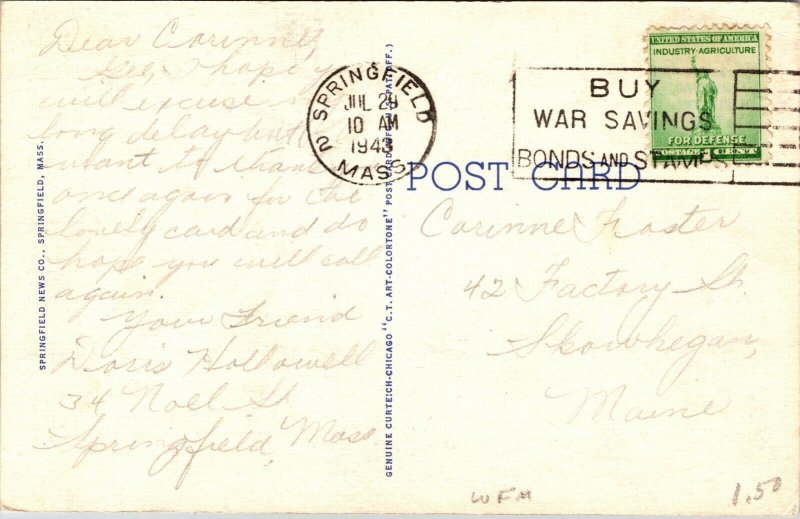 Dear Corinne,
Gee, I hope you
will excuse my
long delay but I
want to thank you
once again for the
lovely card and do
hope you will call
again.
Your Friend
Doris Hollowell
34 Noel St
Springfield, Mass
SPRINGFIELD NEWS CO., SPRINGFIELD, MASS.
GENUINE CURTEICH-CHICAGO "C.T. ART-COLORTONE" POST CARD (REG. U.S. PAT. OFF.)
SPRINGFIELD 2
JUL 29
10 AM
1943
MASS.
BUY
WAR SAVINGS
BONDS AND STAMPS
UNITED STATES OF AMERICA
INDUSTRY-AGRICULTURE
FOR DEFENSE
POSTAGE 1 CENT
POST CARD
Corinne Foster
42 Factory St.
Skowhegan,
Maine
WFM
1.50